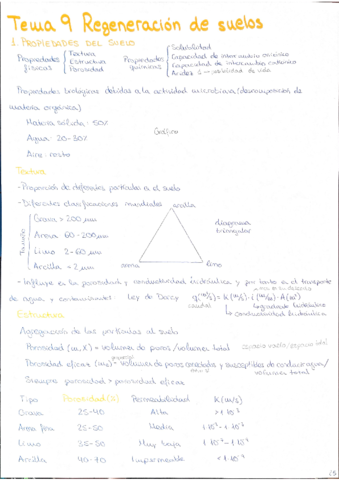 Tema 9 Regeneración de suelos
1. PROPIEDADES DEL SUELO
Propiedades físicas { Textura
Estructura
Porosidad
Propiedades químicas { Solubilidad
Capacidad de intercambio aniónico
Capacidad de intercambio catiónico
Acidez
Propiedades biológicas debidas a la actividad microbiana (descomposición de
materia orgánica)
Materia sólida: 50%
Agua: 20-30%
Gráfico
Aire: resto
Textura
- Proporción de diferentes partículas en el suelo
- Diferentes clasificaciones mundiales
arcilla
Tamaño
Grava > 200 μm
Arena 60-200 μm
Limo 2-60 μm
Arcilla < 2 μm
diagrama
triangular
arena
limo
- Influye en la porosidad y conductividad hidráulica y por tanto en el transporte
de agua y contaminantes: Ley de Darcy q(m³/s) = K(m/s) · i (m/m) · A(m²)
caudal
gradiente hidráulico
conductividad hidráulica
Estructura
Agregación de las partículas del suelo
Porosidad (m, %) = volumen de poros / volumen total
Porosidad eficaz = volumen de poros conectados y susceptibles de conducir agua /
volumen total
Siempre porosidad > porosidad eficaz
Tipo Porosidad (%) Permeabilidad K (m/s)
Grava 25-40 Alta
Arena fina 25-50 Media
Limo 35-50 Muy baja
Arcilla 40-70 Impermeable